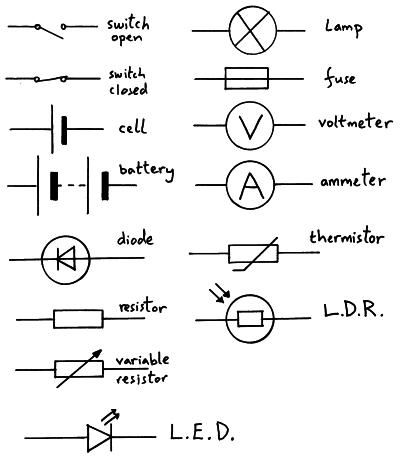 switch
open
switch
closed
cell
battery
diode
resistor
variable
resistor
L.E.D.
Lamp
fuse
V
voltmeter
A
ammeter
thermistor
L.D.R.